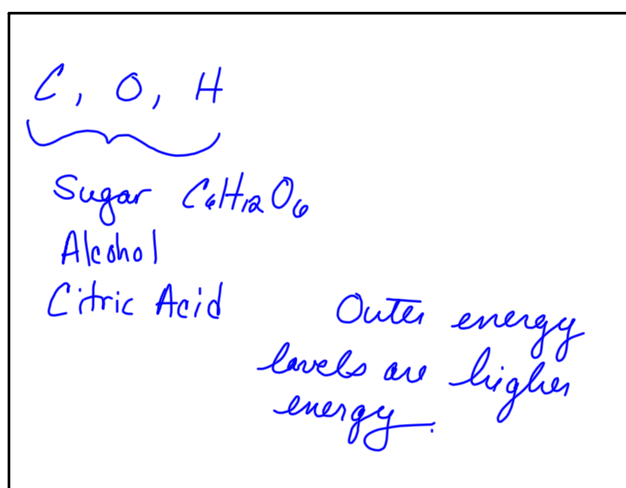 C, O, H
Sugar C₆H₁₂O₆
Alcohol
Citric Acid
Outer energy
levels are higher
energy.